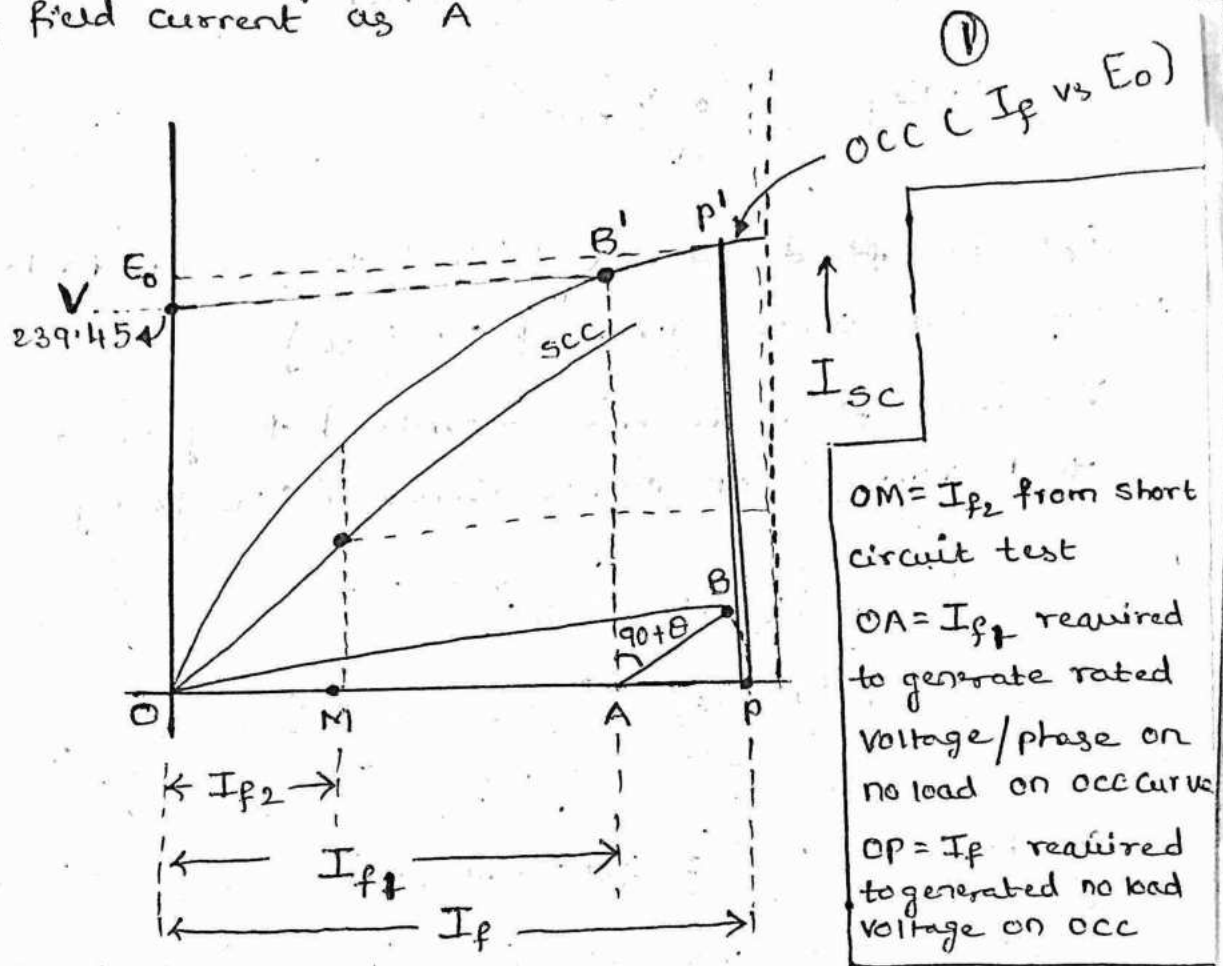 field current as A
①
OCC ( If vs E0)
P'
B'
E0
V
239.45
SCC
ISC
B
90+θ
O
M
A
P
If2
If1
If
OM = If2 from short
circuit test
OA = If1 required
to generate rated
voltage/phase on
no load on occ curve
OP = If required
to generated no load
voltage on occ